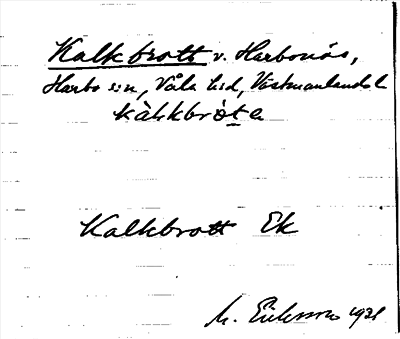 Kalkbrott v. Harbonäs,
Harbo s:n, Våla hd, Västmanlands l
kàlkbrò̱te
Kalkbrott Ek
M. Eriksson 1931